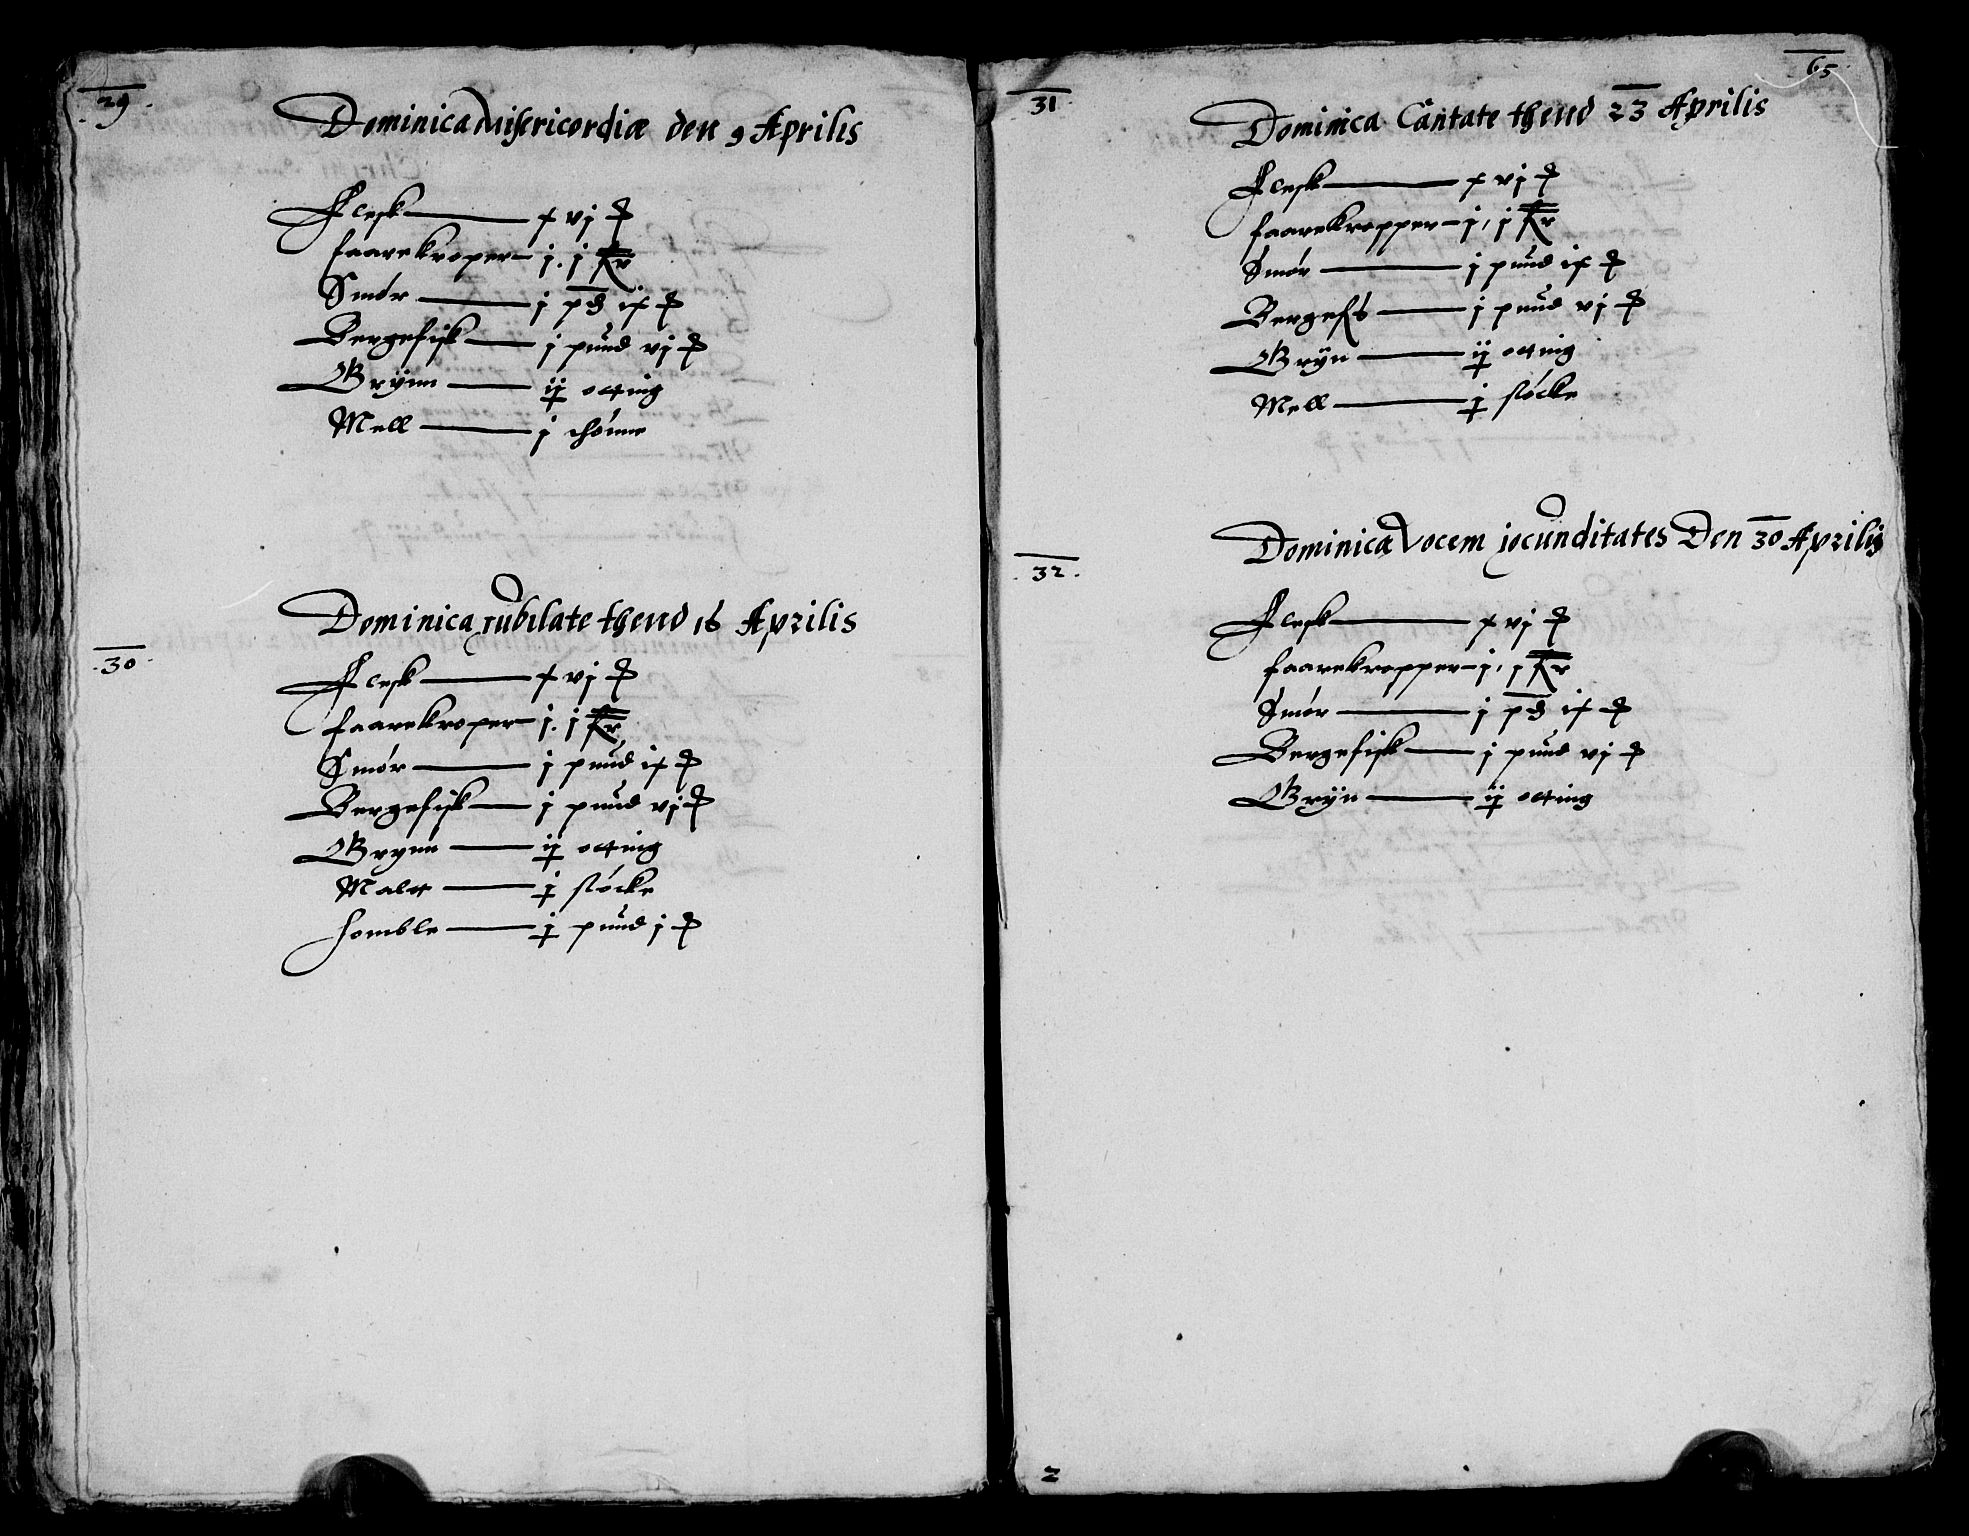 29
Dominica Misericordiæ den 9 Aprilis
Flesk x vj ℔
faarekroper j. j kr
Smør j pd ix ℔
Bergefisk j pund vj ℔
Grÿnn ij otting
Mell j thønne
30
Dominica Iubilate thend 16 Aprilis
Flesk x vj ℔
faarekroper j. j kr
Smør j pund ix ℔
Bergefisk j pund vj ℔
Grynn ij otting
Malt j støcke
homble j pund j ℔
65
31
Dominica Cantate thend 23 Aprilis
Flesk x vj ℔
faarekropper j, j kr
Smør j pund ix ℔
j pund vj ℔
Grÿn ij otting
Mell j støcke
32
Dominica Vocem jocunditates Den 30 Aprilis
Flesk x vj ℔
faarekropper j, j kr
Smør j pd ix ℔
Bergefisk j pund vj ℔
Grÿn ij otting
2